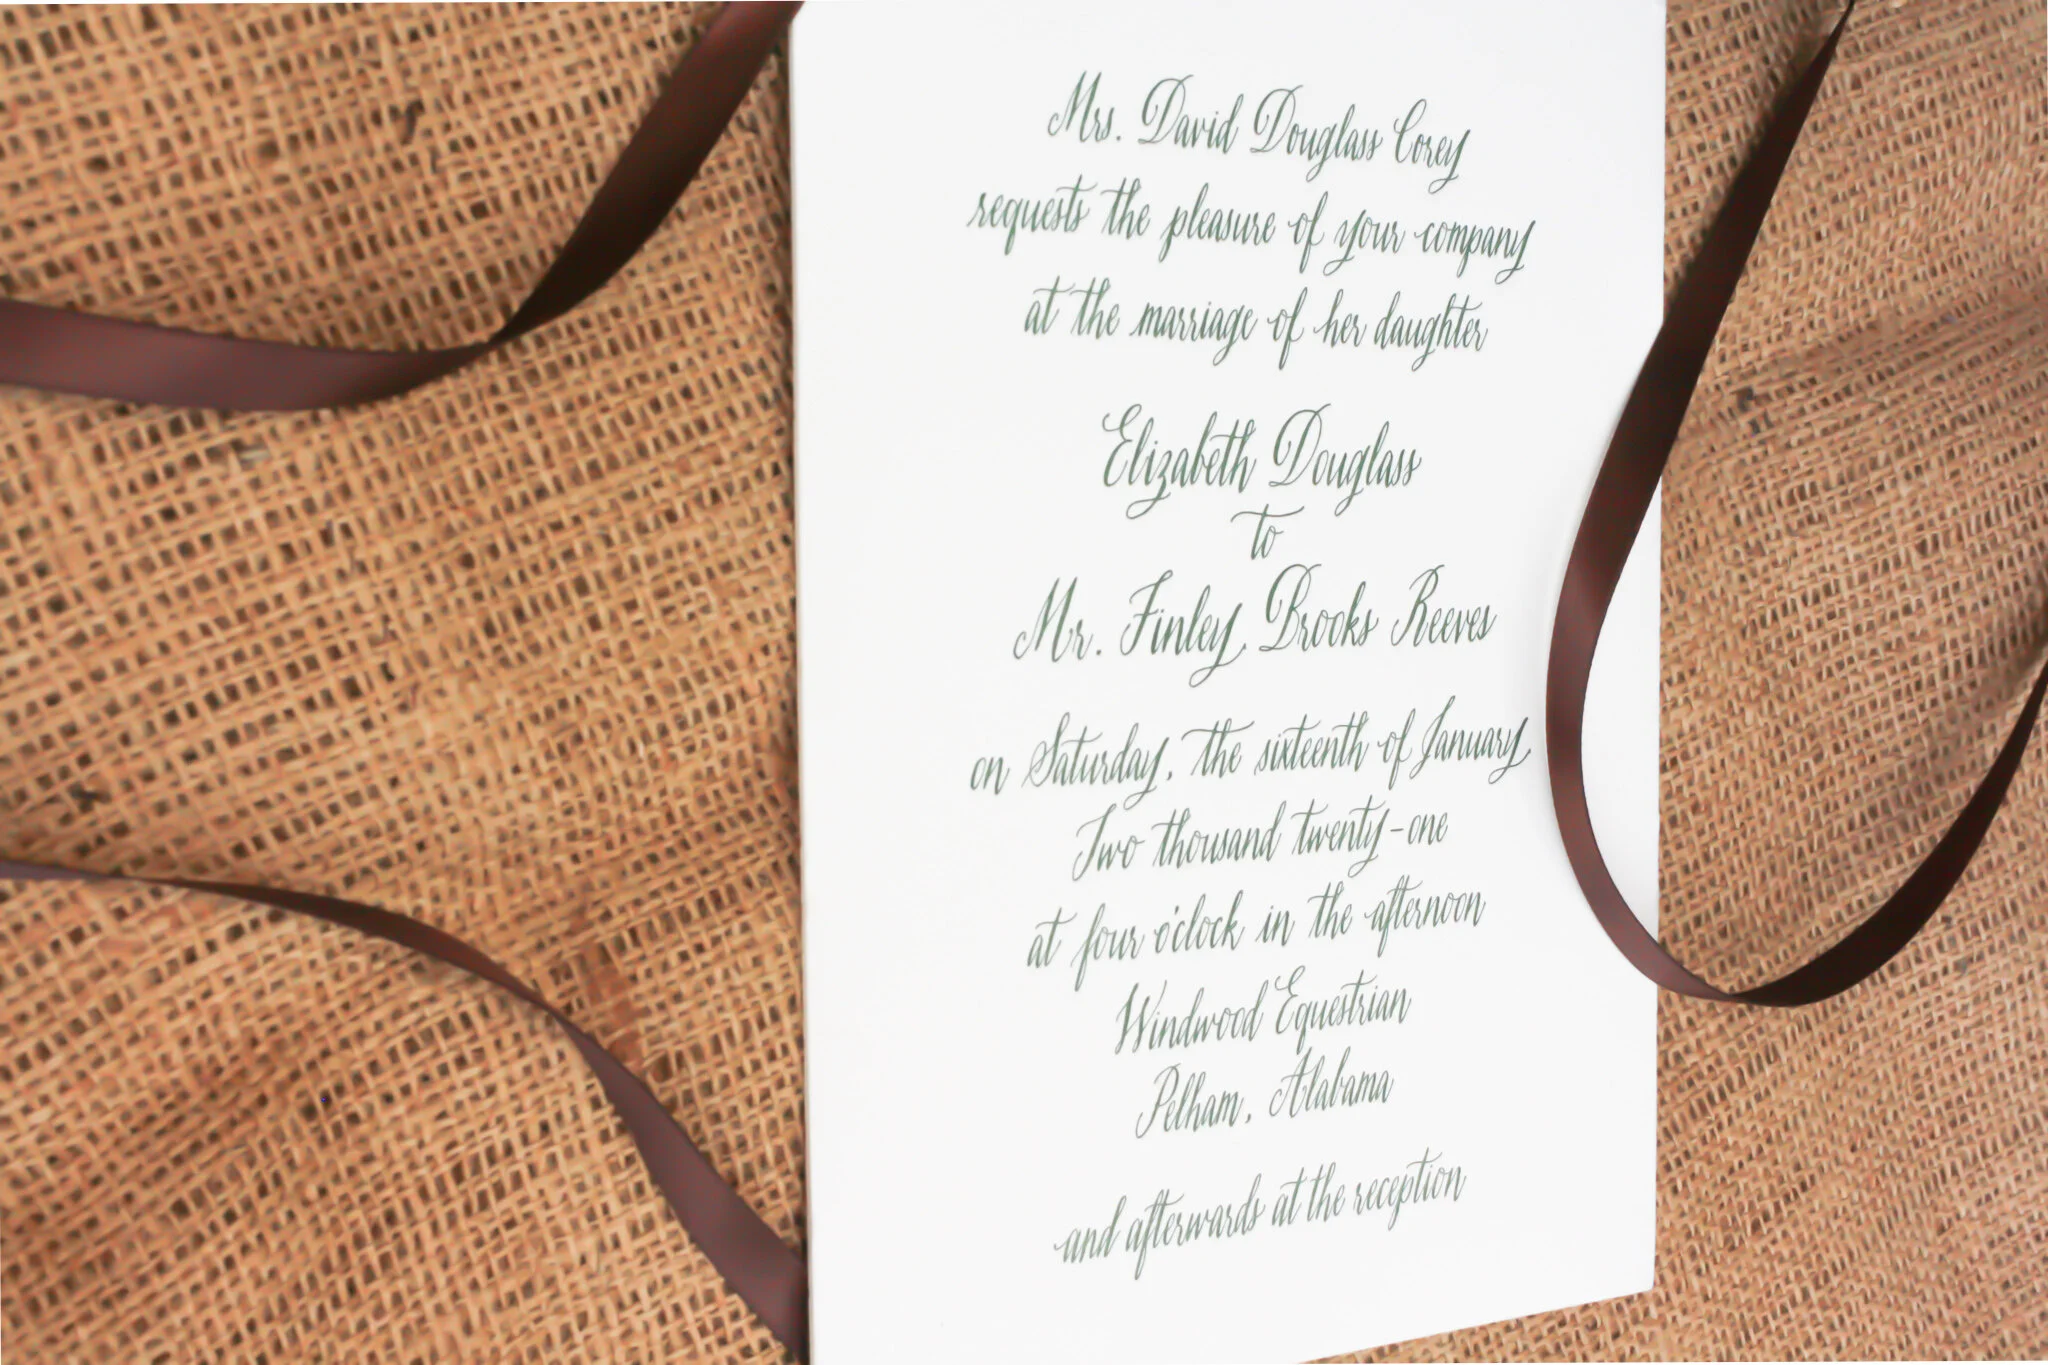 Mrs. David Douglass Corey
requests the pleasure of your company
at the marriage of her daughter
Elizabeth Douglass
to
Mr. Finley Brooks Reeves
on Saturday, the sixteenth of January
Two thousand twenty-one
at four o'clock in the afternoon
Windwood Equestrian
Pelham, Alabama
and afterwards at the reception